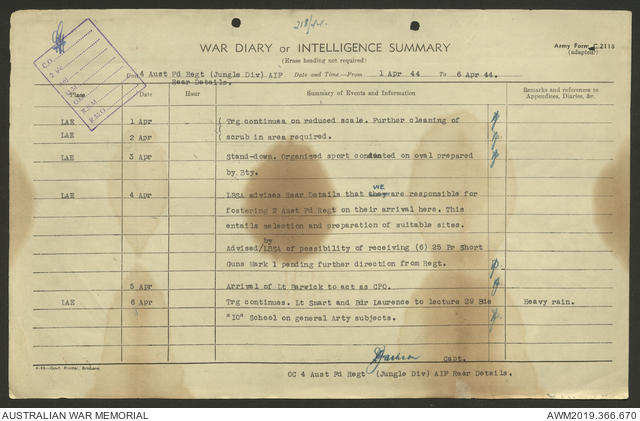 218/44.
WAR DIARY or INTELLIGENCE SUMMARY
(Erase heading not required)
Army Form C.2118
(adapted)
C.O.
2 i/c
Adj
Q.M.
R.S.M.
R.M.O.
Unit 4 Aust Fd Regt (Jungle Div) AIF Date and Time—From 1 Apr 44 To 6 Apr 44.
Rear Details.
Place Date Hour Summary of Events and Information Remarks and references to
Appendices, Diaries, &c.
LAE 1 Apr Trg continues on reduced scale. Further cleaning of
LAE 2 Apr scrub in area required.
LAE 3 Apr Stand-down. Organised sport on oval prepared
by Bty.
WE
LAE 4 Apr LBSA advises Rear Details that they are responsible for
fostering 2 Aust Fd Regt on their arrival here. This
entails selection and preparation of suitable sites.
by
Advised/LBSA of possibility of receiving (6) 25 Pr Short
Guns Mark 1 pending further direction from Regt.
5 Apr Arrival of Lt Barwick to act as CPO.
LAE 6 Apr Trg continues. Lt Smart and Bdr Laurence to lecture 29 Bde Heavy rain.
"IO" School on general Arty subjects.
Capt.
OC 4 Aust Fd Regt (Jungle Div) AIF Rear Details.
Govt. Printer, Brisbane.
AUSTRALIAN WAR MEMORIAL AWM2019.366.670